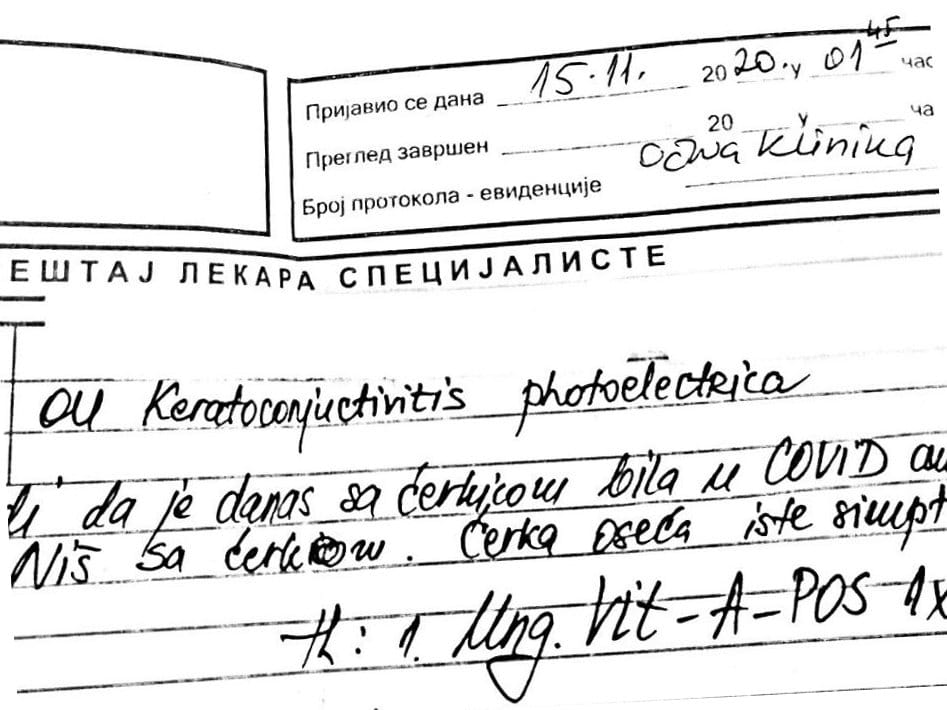 Пријавио се дана 15.11. 2020. у 01 45 час
Преглед завршен 20 у ча
Број протокола - евиденције Očna klinika
ЕШТАЈ ЛЕКАРА СПЕЦИЈАЛИСТЕ
OU Keratoconjuctivitis photoelectrica
da je danas sa ćerkicom bila u COVID
Niš sa ćerkom. Ćerka oseća iste simpt
Th: 1. Ung. Vit-A-POS 1x